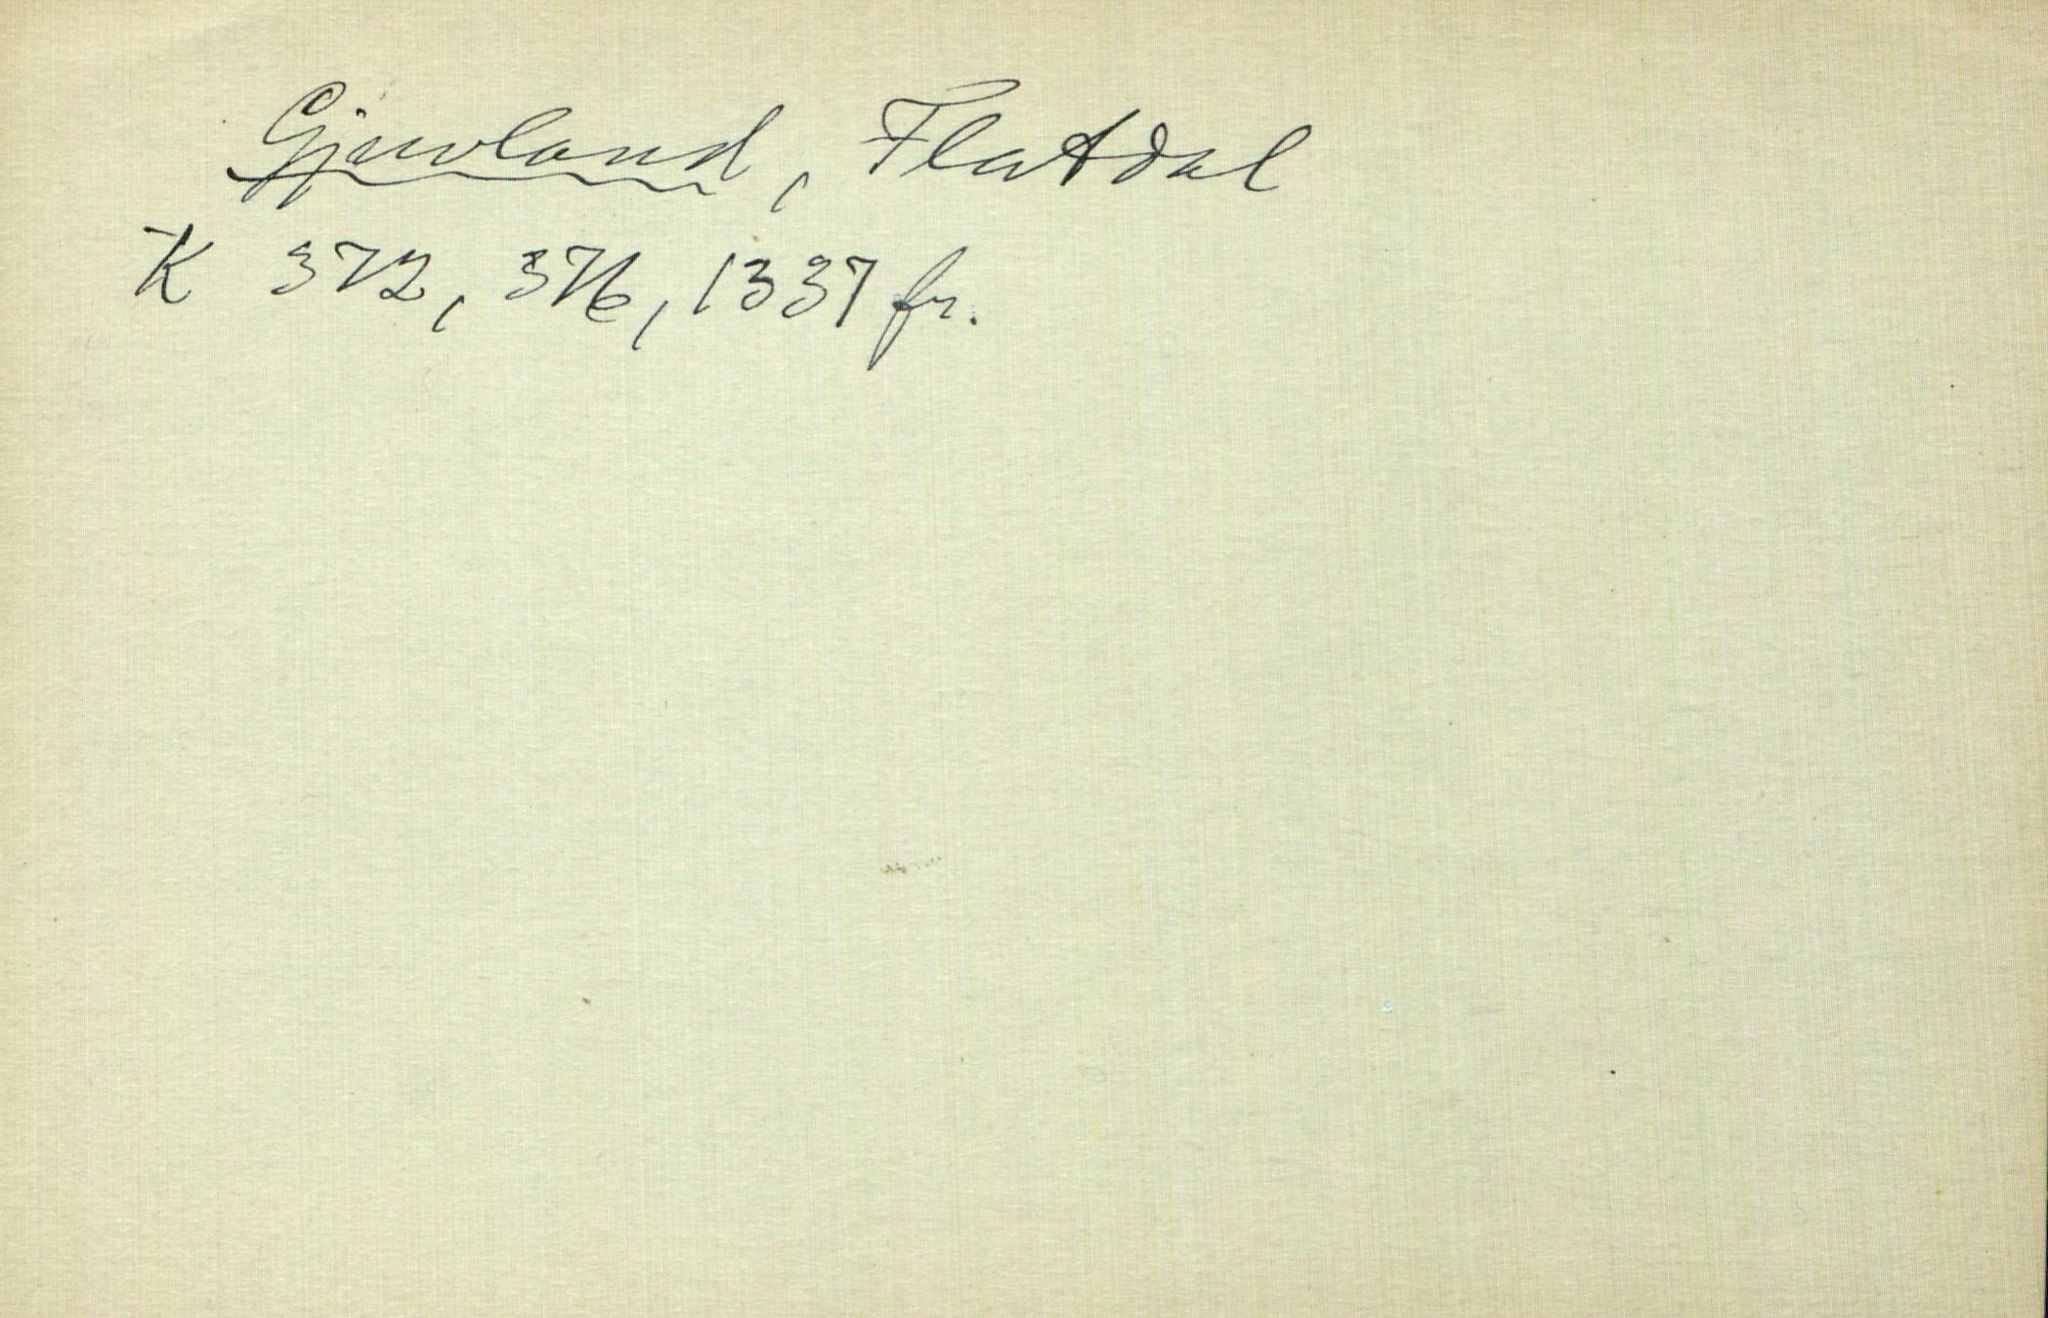 Gjuvland, Flatdal
K 372, 376, 1337 fr.